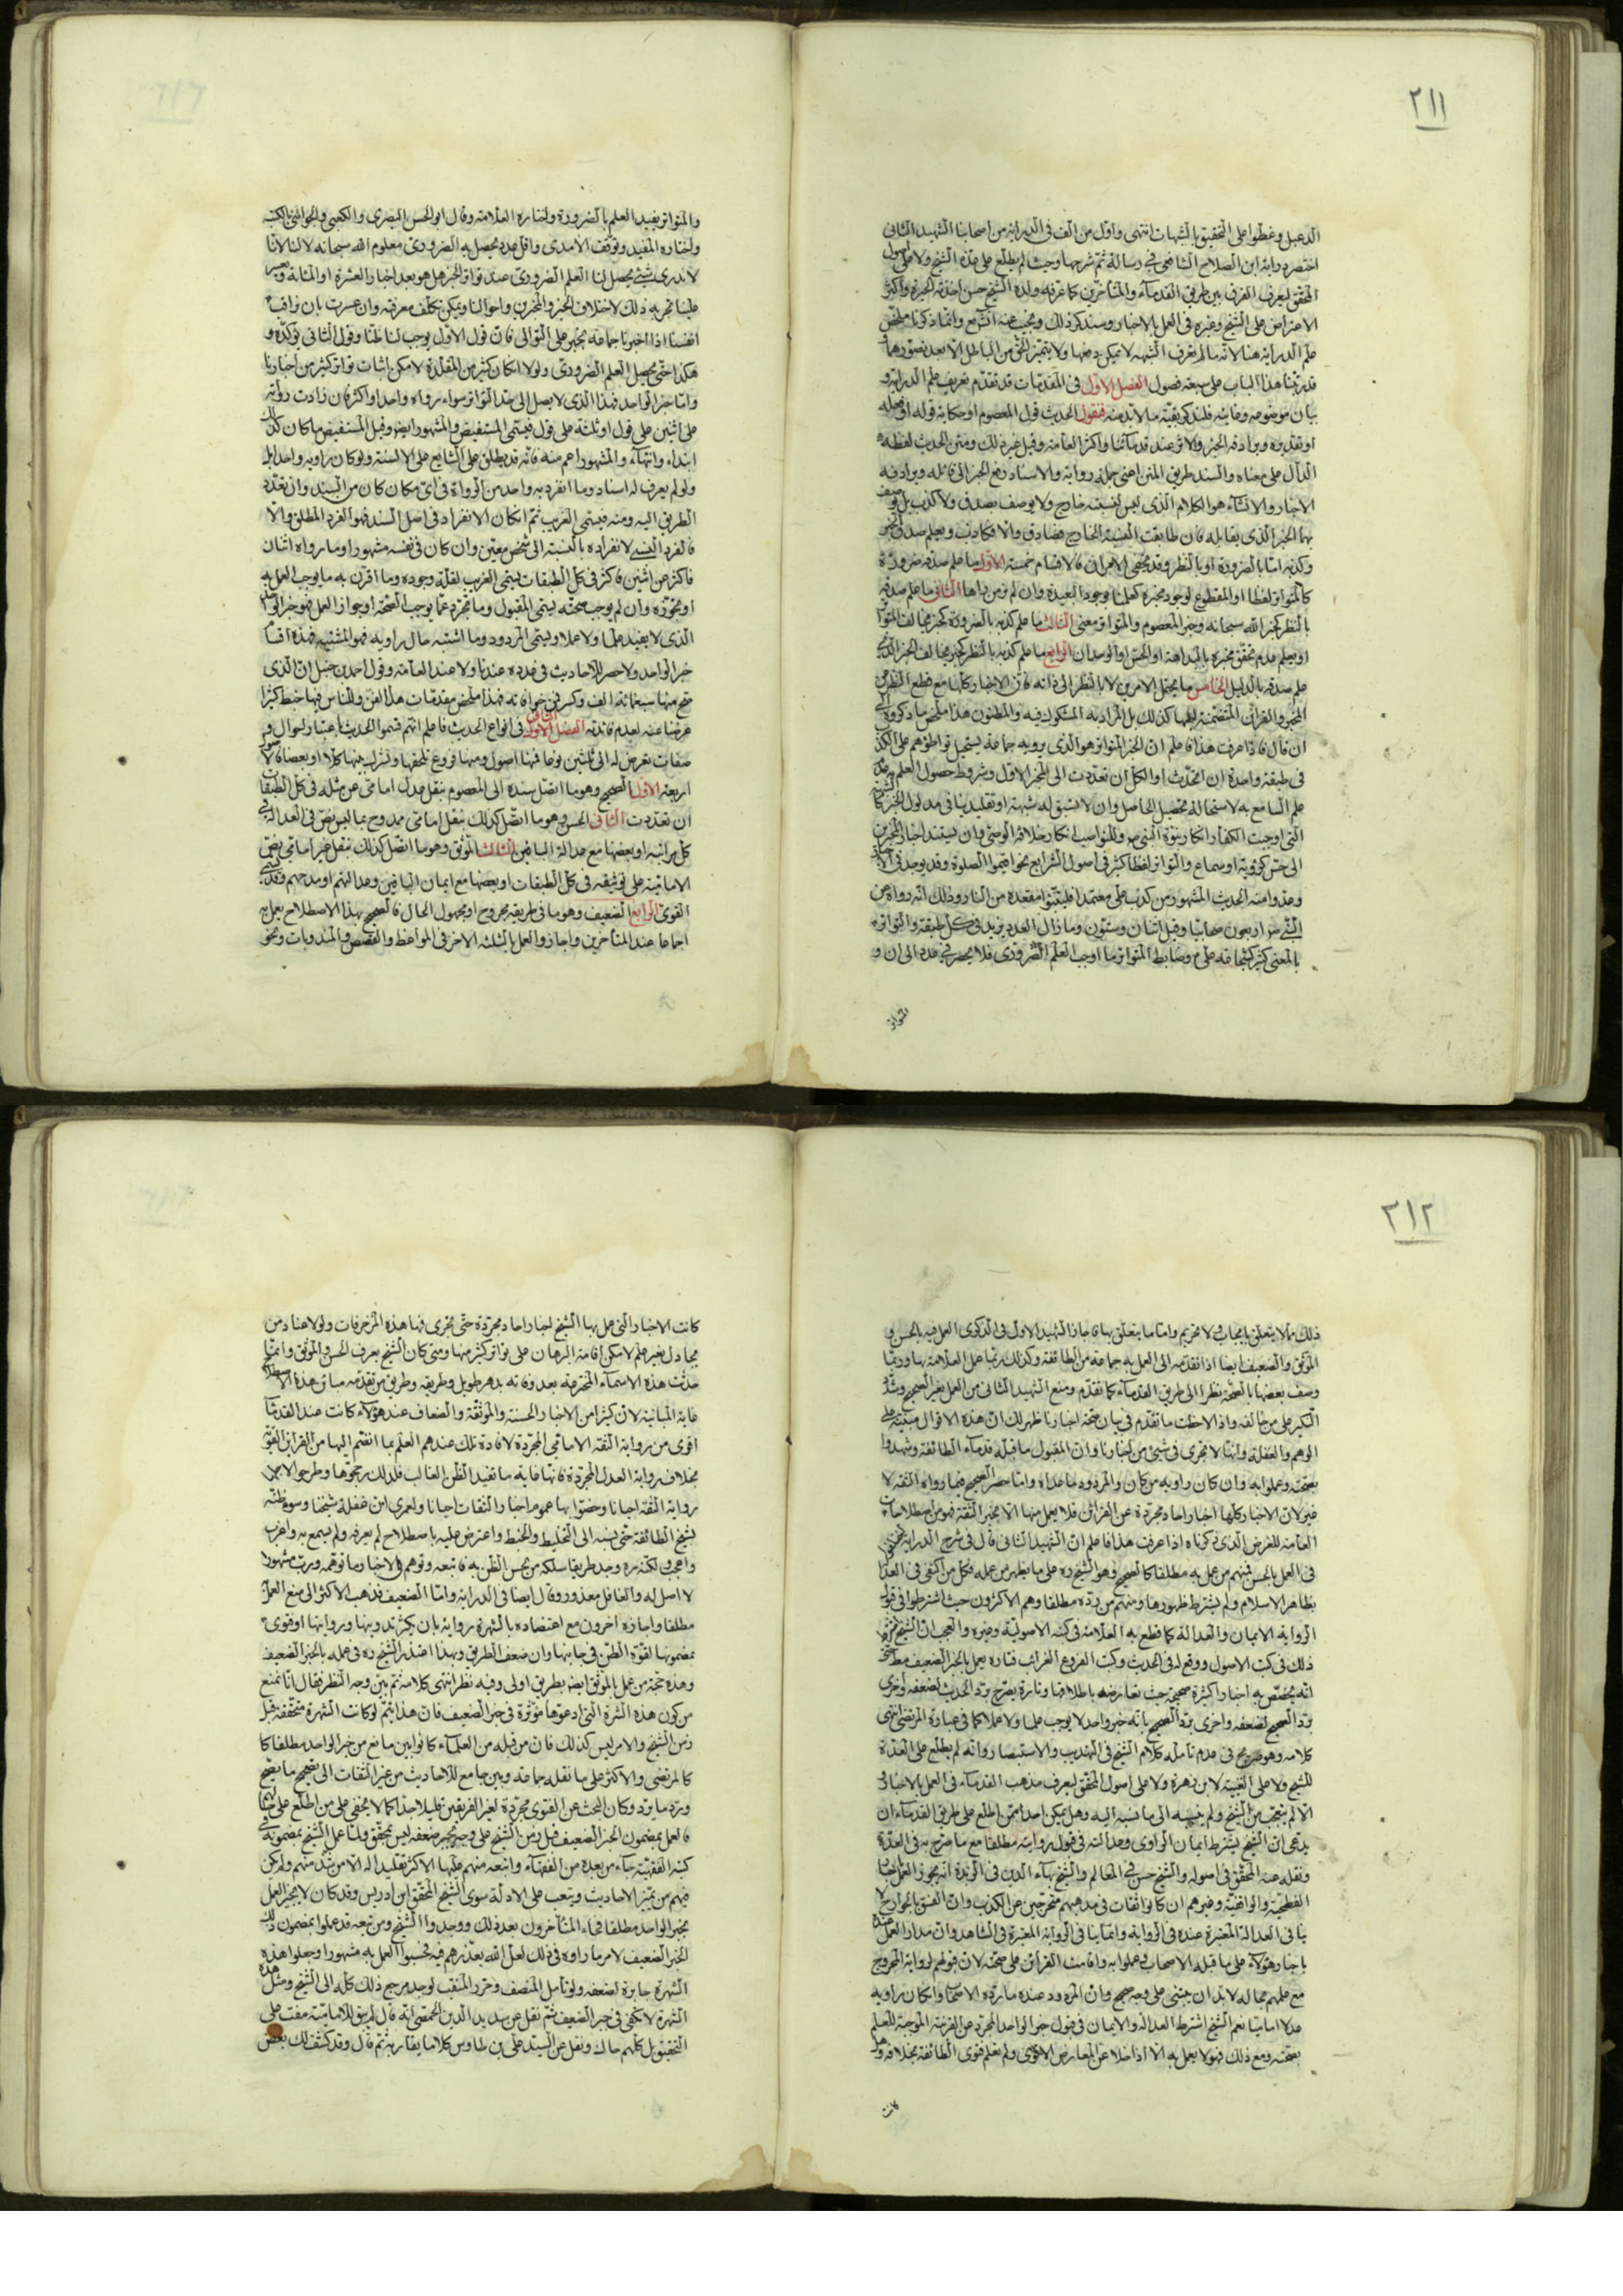 ٢١١
الدعبل وغطوا على التحقيق بالشبهات انتهى واول من الف فى الدراية من اصحابنا الشهيد الثانى
اختصر دراية ابن الصلاح الشافعى فى رسالة ثم شرحها وحيث لم يطلع على هذة الشيخ ولا على اصول
المحقق ليعرف الفرق بين طريق القدمآء والمتأخرين كما عرفه ولده الشيخ حسن اخذته الحيرة واكثر
الاعتراض على الشيخ وغيره فى العمل بالاخبار وسنذكر ذلك ونجيب عنه انشآء الله وانما ذكرنا ملخص
علم الدراية هنا لانه ما لم تعرف الشبهه لا يمكن دفعها ولا يتميز الحق من الباطل الا بعد تصورهما و
قد رتبنا هذا الباب على سبعة فصول الفصل الاول فى المقدمات قد تقدم تعريف علم الدراية و
بيان موضوعه وغايته فلنذكر بقية ما لابد منه فنقول الحديث قول المعصوم او حكاية قوله او فعله
او تقريره ويرادفه الخبر والاثر عند قدمآئنا واكثر العامة وقيل غير ذلك ومتن الحديث لفظه
الدال على معناه والسند طريق المتن اعنى جملة رواته والاسناد رفع الخبر الى قائله ويرادفه
الاخبار والانشآء هو الكلام الذى ليس لنسبته خارج ولا يوصف بصدق ولا كذب بل يوصف
بهما الخبر الذى يقابله فان طابقت النسبة الخارج فصادق والا فكاذب ويعلم صدق الخبر
وكذبه اما بالضرورة او بالنظر وقد يخفى الامران فالاقسام خمسة الاول ما علم صدقه ضرورة
كالمتواتر لفظا او المقطوع لوجود مخبره كعلمنا بوجود البعيدة وان لم نرها الثانى ما علم صدقه
بالنظر كخبر الله سبحانه وخبر المعصوم والمتواتر معنى الثالث ما علم كذبه بالضرورة كخبر مخالف المتواتر
او يعلم عدم تحقق مخبره بالبداهة او الحس او الوجدان الرابع ما علم كذبه بالنظر كخبر مخالف الخبر الذى
علم صدقه بالدليل الخامس ما يحتمل الامرين لا بالنظر الى ذاته فان الاخبار كلها مع قطع النظر عن
المخبر والقرائن المتضمنة اليها كذلك بل المراد به المشكوك فيه والمظنون هذا ملخص ما ذكروه الى
ان قال فاذا عرفت هذا فاعلم ان الخبر المتواتر هو الذى يرويه جماعة يستحيل تواطؤهم على الكذب
فى طبقة واحدة ان اتحدت او الكل ان تعددت الى المخبر الاول وشروط حصول العلم به عدم
علم السامع به لاستحالة تحصيل الحاصل وان لا تسبق له شبهة او تقليد ينافى مدلول الخبر كالشبهة
التى اوجبت للكفار انكار نبوة النبى ص وللنواصب انكار خلافة الوصى وان يستند اخبار المخبرين
الى حس كرؤية او سماع والتواتر لفظا كثير فى اصول الشرايع نحو اقيموا الصلوة وقد يوجد فى الاحاديث
وعدوا منه الحديث المشهور من كذب على متعمدا فليتبوأ مقعده من النار وذلك انه رواه عن
النبى ص اربعون صحابيا وقيل اثنان وستون وما زال العدد يزيد فى كل طبقة والتواتر
بالمعنى كثير كشجاعة على ع وضابط المتواتر ما اوجب العلم الضرورى فلا يحصر فى عدد الى ان و
المتواتر
والمتواتر يفيد العلم بالضرورة واختاره العلامة وقال ابو الحسن البصرى والكعبى والجوينى بالكسب
واختاره المفيد وتوقف الآمدى واقل عدد يحصل به الضرورى معلوم الله سبحانه لا لنا لانا
لا ندرى متى يحصل لنا العلم الضرورى عند تواتر الخبر هل هو بعد اخبار العشرة او المائة ويعسر
علينا تجربة ذلك لاختلاف الخبر والمخبرين واحوالنا ويمكن تكلف معرفته وان عسرت بان نراقب
انفسنا اذا اخبرنا جماعة بخبر على التوالى فان قول الاول يوجب لنا ظنا وقول الثانى يؤكده و
هكذا حتى يحصل العلم الضرورى ولولا انكار كثير من المقلدة لامكن اثبات تواتر كثير من اخبارنا
واما خبر الواحد فهذا الذى لا يصل الى حد التواتر سواء رواه واحد او اكثر فان زادت رواته
على اثنين على قول او ثلثة على قول فيسمى المستفيض والمشهور ايضا وقيل المستفيض ما كان كذلك
ابتداء وانتهآء والمشهور اعم منه فانه قد يطلق على الشايع على الالسنة ولو كان راويه واحدا بل
ولو لم يعرف له اسناد وما انفرد به واحد من الرواة فى اى مكان كان من السند وان تعدد
الطريق اليه ومنه فيسمى الغريب ثم ان كان الانفراد فى اصل السند فهو الفرد المطلق والا
فالفرد النسبى لانفراده بالنسبة الى شخص معين وان كان فى نفسه مشهورا وما رواه اثنان
فاكثر عن اثنين فاكثر فى كل الطبقات يسمى العزيز لقلة وجوده وما اقترن به ما يوجب العمل به
او يجوزه وان لم يوجب صحته يسمى المقبول وما تجرد عما يوجب الصحة او جواز العمل فهو خبر الواحد
الذى لا يفيد علما ولا عملا ويسمى المردود وما اشتبه حال راويه فهو المشتبه فهذه اقسام
خبر الواحد ولا حصر للاحاديث فى عدده عندنا ولا عند العامة وقول احمد بن حنبل ان الذى
صح منها سبعمائة الف وكسر فمن خرافاته فهذا ملخص مقدمات هذا الفن وللناس فيها خبط كثير ا
عرضنا عنه لعدم فائدته الفصل الثانى فى انواع الحديث فاعلم انهم قسموا الحديث باعتبار احوال و
صفات تعرض له الى ثلثين نوعا فمنها اصول ومنها فروع تلحقها وتتركب منها كلا او بعضا فالاصول
اربعة الاول الصحيح وهو ما اتصل سنده الى المعصوم بنقل عدل امامى عن مثله فى كل الطبقات
ان تعددت الثانى الحسن وهو ما اتصل كذلك بنقل امامى ممدوح بما ليس نص فى العدالة فى
كل مراتبه او بعضها مع عدالة الباقين الثالث الموثق وهو ما اتصل كذلك بنقل غير امامى نص
الامامية على توثيقه فى كل الطبقات او بعضها مع ايمان الباقين وعدالتهم او مدحهم وقد يسمى
القوى الرابع الضعيف وهو ما فى طريقه مجروح او مجهول الحال فالصحيح بهذا الاصطلاح يعمل به
اجماعا عند المتأخرين واجازوا العمل بالثلثة الاخر فى المواعظ والقصص والمندوبات ونحو
٢١٢
ذلك مما لا يتعلق بايجاب ولا تحريم واما ما يتعلق بها فاجاز الشهيد الاول فى الذكرى العمل فيه بالحسن و
الموثق والضعيف ايضا اذا تقدمه الى العمل به جماعة من الطائفة وكذلك ربما عمل العلامة بها وربما
وصف بعضها بالصحة نظرا الى طريق القدمآء كما تقدم ومنع الشهيد الثانى من العمل بغير الصحيح وشدد
النكير على من خالفه واذا لاحظت ما تقدم فى بيان صحة اخبارنا ظهر لك ان هذه الاقوال مبنية على
الوهم والغفلة وانها لا تجرى فى شئ من اخبارنا وان المقبول ما قبله قدمآء الطائفة وشهدوا
بصحته وعملوا به وان كان راويه من كان والمردود ما عداه واما حصر الصحيح فيما رواه الثقة لا
غير لان الاخبار كلها اخبار احاد مجردة عن القرائن فلا يعمل منها الا بخبر الثقة فهو من اصطلاحات
العامة للغرض الذى ذكرناه اذا عرفت هذا فاعلم ان الشهيد الثانى قال فى شرح الدراية اختلفوا
فى العمل بالحسن فمنهم من عمل به مطلقا كالصحيح وهو الشيخ ره على ما يظهر من عمله وكل من اكتفى فى العدالة
بظاهر الاسلام ولم يشترط ظهورها ومنهم من رده مطلقا وهم الاكثرون حيث اشترطوا فى قبول
الرواية الايمان والعدالة كما قطع به العلامة فى كتبه الاصولية وغيره والعجب ان الشيخ اشترط
ذلك فى كتب الاصول ووقع له فى الحديث وكتب الفروع الغرائب فتارة يعمل بالخبر الضعيف مطلقا حتى
انه يخصص به اخبارا كثيرة صحيحة حيث تعارضه باطلاقها وتارة يصرح برد الحديث لضعفه واخرى
برد الصحيح لضعفه واخرى برد الصحيح بانه خبر واحد لا يوجب علما ولا عملا كما فى عبارة المرتضى انتهى
كلامه وهو صريح فى عدم تأمله كلام الشيخ فى التهذيب والاستبصار وانه لم يطلع على العدة
للشيخ ولا على الغنية لابن زهرة ولا على اصول المحقق ليعرف مذهب القدمآء فى العمل بالاخبار و
الا لم يتعجب من الشيخ ولم ينسبه الى ما نسبه اليه وهل يمكن احد ممن اطلع على طريق القدمآء ان
يدعى ان الشيخ يشترط ايمان الراوى وعدالته فى قبول روايته مطلقا مع ما صرح به فى العدة
ونقله عنه المحقق فى اصوله والشيخ حسن فى المعالم والشيخ بهآء الدين فى الزبدة انه يجوز العمل باخبار
الفطحية والواقفية وغيرهم ان كانوا ثقات فى مذهبهم متحرجين عن الكذب وان الفسق بالجوارح لا
ينافى العدالة المعتبرة عنده فى الرواية وانما ينافى الرواية المعتبرة فى الشاهد وان مدار العمل عنده
باخبار هؤلاء على ما قبله الاصحاب وعملوا به وقامت القرائن على صحته لان قولهم لرواية المجروح
مع علمهم بحاله لا بد ان يبتنى على وجه صحيح وان المردود عنده ما رده الاصحاب وان كان راويه
عدلا اماميا نعم الشيخ اشترط العدالة والايمان فى قبول خبر الواحد المجرد عن القرينة الموجبة للعلم
بصحته ومع ذلك فهو لا يعمل به الا اذا خلا عن المعارض الاقوى ولم يعلم فتوى الطائفة بخلافه ولو
كانت
كانت الاخبار التى عمل بها الشيخ اخبار احاد مجردة حتى يجرى فيها هذه المزخرفات ولولا عناد من
يجادل بغير علم لامكن اقامة البرهان على تواتر كثير منها ومتى كان الشيخ يعرف الحسن والموثق وانما
حدثت هذه الاسمآء المخترعة بعد وفاته بدهر طويل وطريقه وطريق من تقدمه مباين هذا الاصطلاح
غاية المباينة لان كثيرا من الاخبار الحسنة والموثقة والضعاف عند هؤلاء كانت عند القدمآء
اقوى من رواية الثقة الامامى المجردة لافادة تلك عندهم العلم بما انضم اليها من القرائن القوية
بخلاف رواية العدل المجردة فانها غاية ما تفيد الظن الغالب فلذلك رجحوها وطرحوا لاجلها
رواية الثقة احيانا وخصوا بها عموم اخبار الثقات احيانا ولعمرى ان غفلة شيخنا وسوء ظنه
بشيخ الطائفة حتى نسبه الى التخليط والخبط واعترض عليه باصطلاح لم يعرفه ولم يسمع به واغرب
واعجب ولكنه ره وجد طريقا سلكه من يحسن الظن به فاتبعه وتوهم فى الاخبار ما توهمه ورب مشهور
لا اصل له والغافل معذور وقال ايضا فى الدراية واما الضعيف فذهب الاكثر الى منع العمل
مطلقا واجازه اخرون مع اعتضاده بالشهرة رواية بان يكثر تدوينها وروايتها او فتوى
بمضمونها لقوة الظن فى جانبها وان ضعف الطريق وبهذا اعتذر الشيخ ره فى عمله بالخبر الضعيف
وهذه حجة من عمل بالموثق ايضا بطريق اولى وفيه نظر انتهى كلامه ثم بين وجه النظر فقال انا نمنع
من كون هذه الشهرة التى ادعوها مؤثرة فى جبر الضعيف فان هذا يتم لو كانت الشهرة متحققة قبل
زمن الشيخ والامر ليس كذلك فان من قبله من العلمآء كانوا بين مانع من خبر الواحد مطلقا كا
كالمرتضى والاكثر على ما نقله جماعة وبين جامع للاحاديث من غير التفات الى تصحيح ما يصح
ورد ما يرد وكان البحث عن الفتوى مجردة لغير الفريقين قليلا جدا كما لا يخفى على من اطلع على حالهم
فالعمل بمضمون الخبر الضعيف قبل زمن الشيخ على وجه يجبر ضعفه ليس بمتحقق ولما عمل الشيخ بمضمونه فى
كتبه الفقهية جآء من بعده من الفقهآء واتبعه منهم عليها الاكثر تقليدا له الا من شذ منهم ولم يكن
فيهم من يميز الاحاديث وينقب على الادلة سوى الشيخ المحقق ابن ادريس وقد كان لا يجيز العمل
بخبر الواحد مطلقا فجاء المتأخرون بعد ذلك ووجدوا الشيخ ومن تبعه قد عملوا بمضمون ذلك
الخبر الضعيف لامر ما رأوه فى ذلك لعل الله يعذرهم فيه فحسبوا العمل به مشهورا وجعلوا هذه
الشهرة جابرة لضعفه ولو تأمل المنصف وحرر المنقب لوجد مرجع ذلك كله الى الشيخ ومثل هذه
الشهرة لا تكفى فى جبر الضعيف ثم نقل عن سديد الدين الحمصى انه قال لم يبق للامامية مفت على
التحقيق بل كلهم حاك ونقل عن السيد على بن طاوس كلاما يقاربه ثم قال وقد كشفت لك بعض